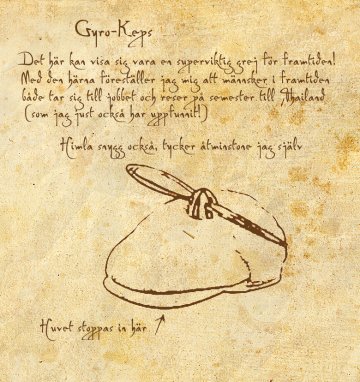 Gyro-Keps
Det här kan visa sig vara en superviktig grej för framtiden!
Med den härna föreställer jag mig att männsker i framtiden
både tar sig till jobbet och reser på semester till Thailand
(som jag just också har uppfunnit!)
Himla snygg också, tycker åtminstone jag själv
Huvet stoppas in här